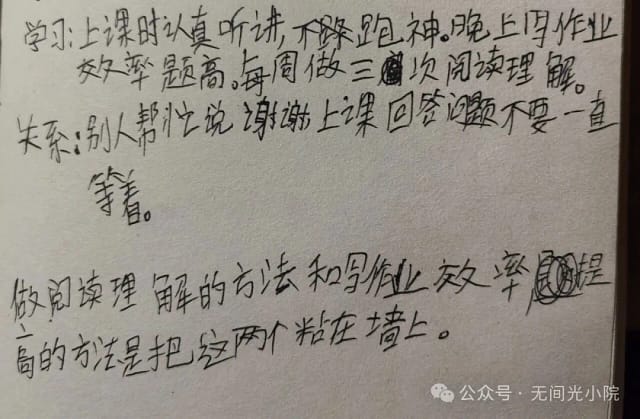 学习:上课时认真听讲,不跑神。晚上写作业
效率题高。每周做三次阅读理解。
关系:别人帮忙说谢谢上课回答问题不要一直
等着。
做阅读理解的方法和写作业效率提
高的方法是把这两个粘在墙上。
公众号·无间光小院